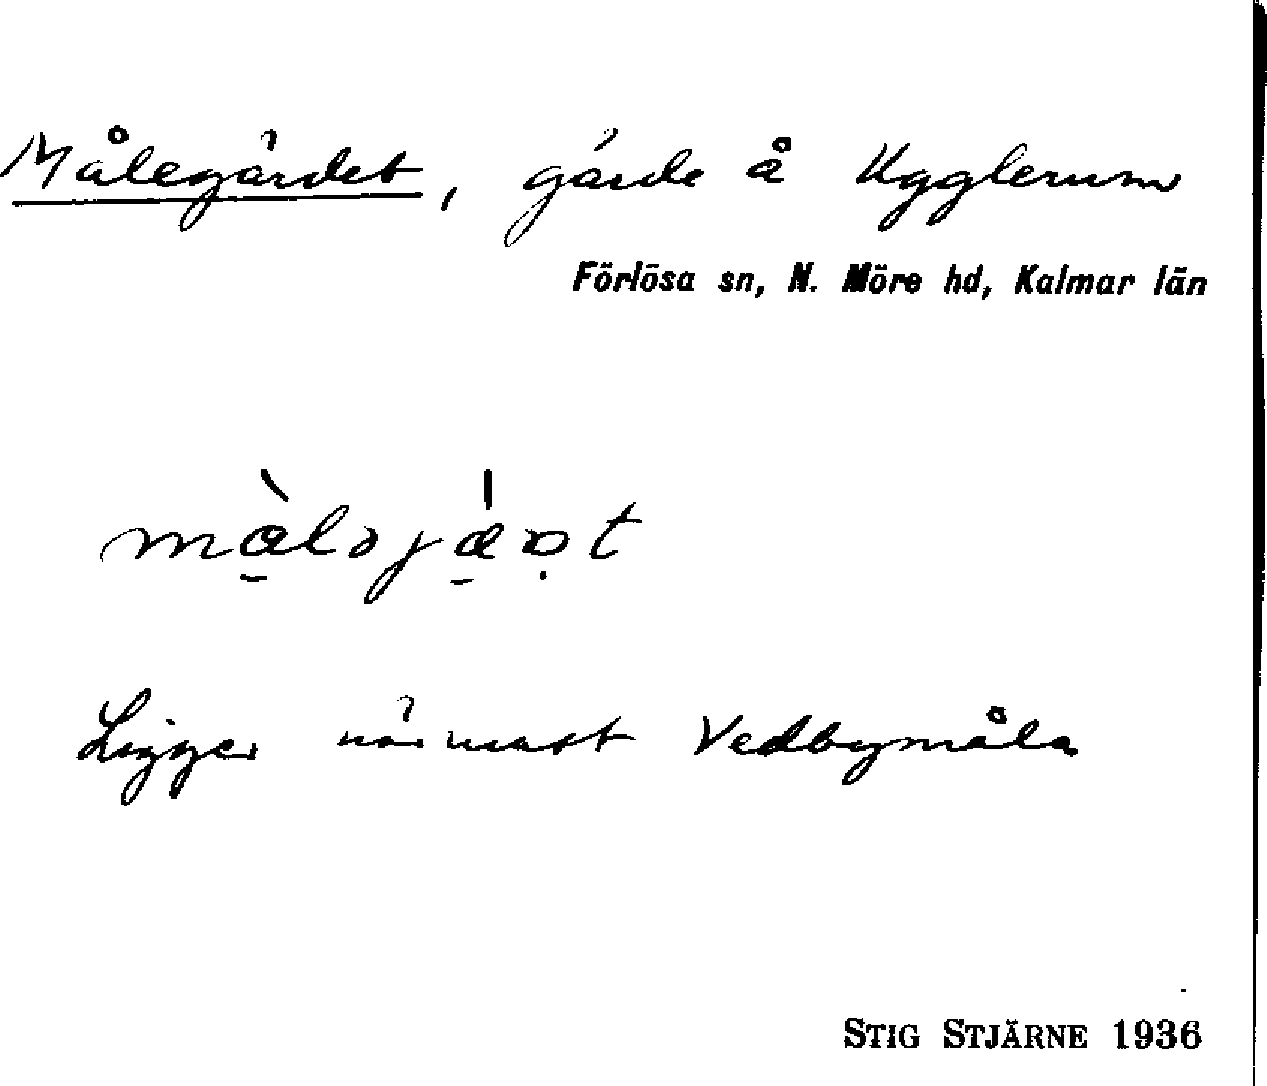 Målegärdet, gärde å Ugglerum
Förlösa sn, N. Möre hd, Kalmar län
Ligger närmast Vedbymåla
STIG STJÄRNE 1936